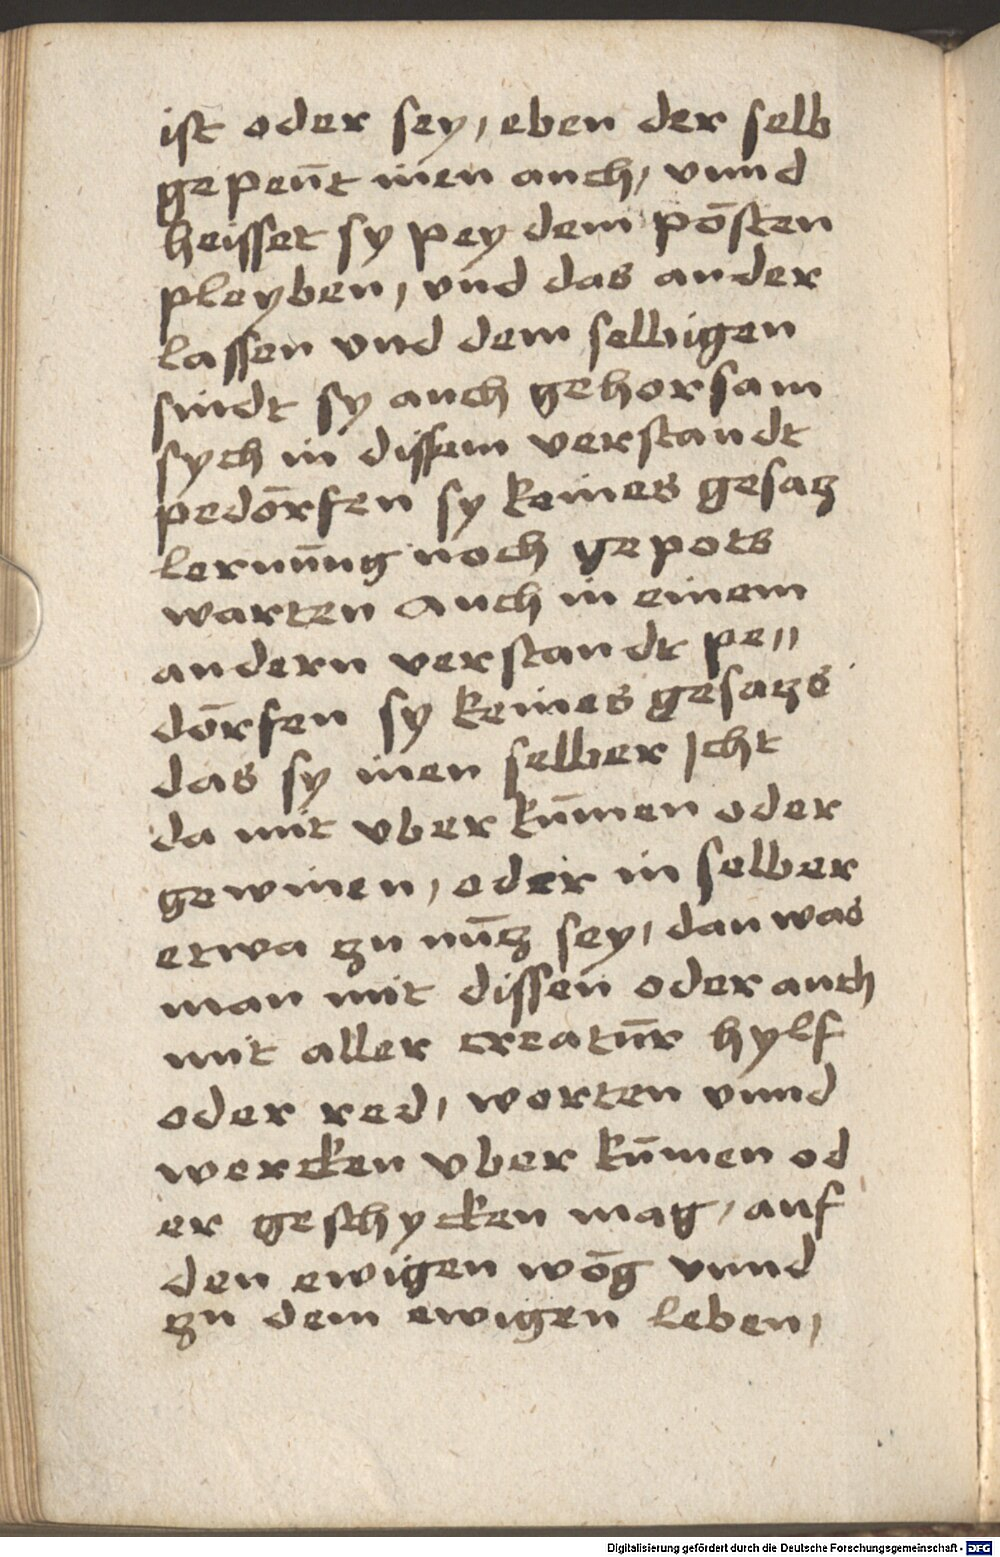 ist oder sey, eben der selb
gepeūt inen auch, vnnd
heisset sy pey dem pōsten
pleyben, vnd das ander
lassen vnd dem selbigen
sindt sy auch gehorsam
sych in dissem verstandt
pedōrfen sy keines gesatz
lernūng noch gepots
warten auch in einem
andern verstandt pe〃
dōrfen sy keines gesatzs
das sy inen selber Jcht
da mit vber kūmen oder
gewinen, oder in selber
etwa zu nūtz sey, dan was
man mit dissen oder auch
mit aller creatūr hylf
oder red, worten vnnd
wercken vber kūmen od
er geschycken mag, auf
den ewigen wōg vnnd
zu dem ewigen leben,
Digitalisierung gefördert durch die Deutsche Forschungsgemeinschaft - DFG